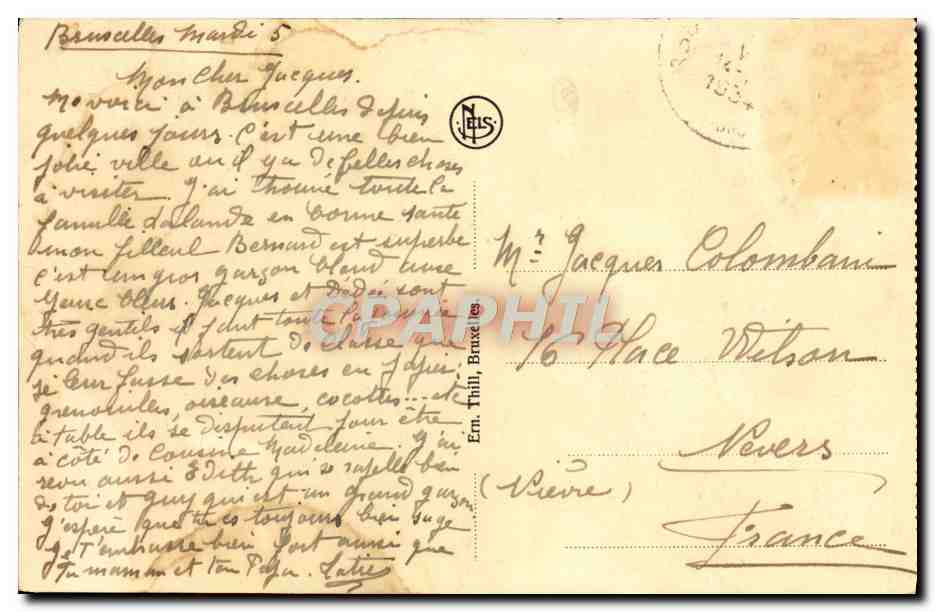 Bruxelles Mardi 5
Mon Cher Jacques.
Me voici à Bruxelles depuis
quelques jours. C'est une bien
jolie ville où il y a de belles choses
à visiter. J'ai trouvé toute la
famille Lalande en bonne santé
mon filleul Bernard est superbe
c'est un gros garçon blond avec
yeux bleus. Jacques et Dédé sont
très gentils il faut toute la
quand ils sortent de classe que
je leur fasse des choses en papier:
grenouilles, oiseaux, cocottes... etc
à table ils se disputent pour être
à côté de Cousine Madeleine. J'ai
revu aussi Edith qui se rapelle bien
de toi et Guy qui est un grand garçon
J'espère que tu es toujours bien sage
Je t'embrasse bien fort ainsi que
Ta maman et ton Papa.
NELS
Ern. Thill, Bruxelles
1934
Mr Jacques Colombani
16 Place Wilson
Nevers
(Nièvre)
France
CPAPHIL